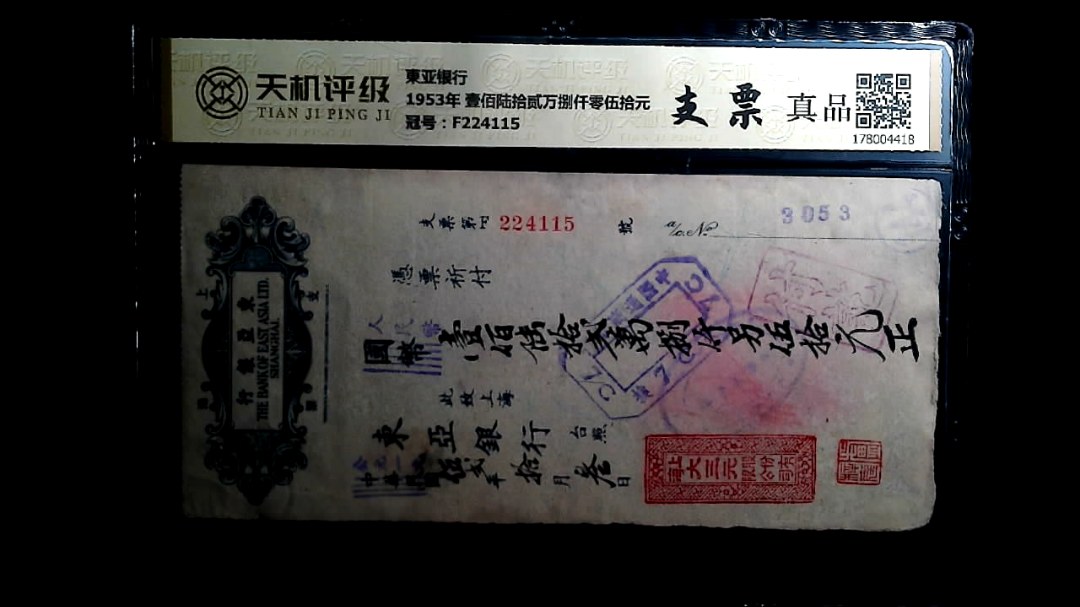 天机评级
TIAN JI PING JI
東亚银行
1953年 壹佰陆拾贰万捌仟零伍拾元
冠号：F224115
支票
真品
178004418
支票第 224115 號
a/c No 3053
憑票祈付
人民幣
國幣 壹佰陸拾貳萬捌仟另伍拾元正
此致上海
東亞銀行 台照
伍貳年拾月叁日
上海
東亞銀行
THE BANK OF EAST ASIA LTD.
SHANGHAI
上海大三元